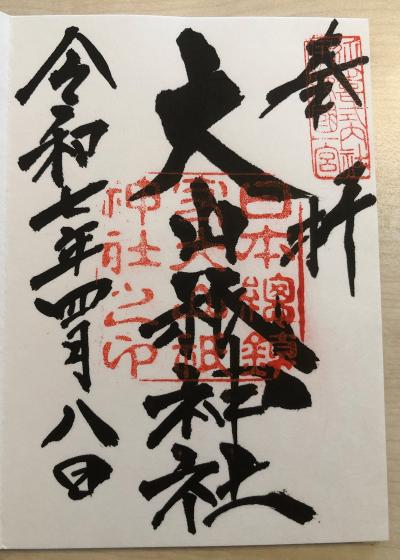 奉拝
大山祇神社
令和七年四月八日
日本總鎮
守大山祇
神社之印